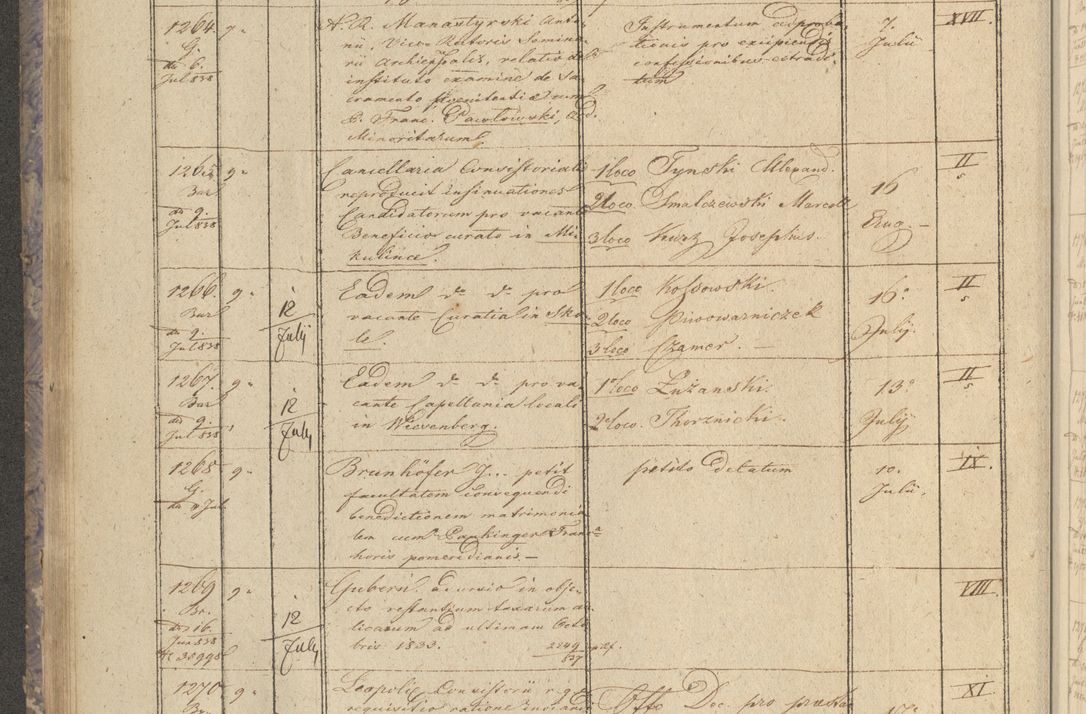 1264. 9
G.
do 6.
Jul 838
A. R. Manastyrski Anto-
nii, Vice-Rectoris Semina-
rii Archieppalis, relatio de
instituto examine de Sa-
cramento poenitentiae cum
P. Franc. Pawlowski, Ord.
Minoritarum
Instrumentum adproba-
tionis pro excipiendis
confessionibus extradi-
tum
7.
Julii
XVII
1265. 9
Bar
do 9.
Jul 838
Cancellaria Consistorialis
reproducit insinuationes
Candidatorum pro vacante
Beneficio curato in Mi-
kulince.
1loco Tynski Alexand.
2loco Smalczewski Marcell
3loco Kurz Josephus.
16
Aug.
II
s
1266. 9
Bar
do 9.
Jul 838
12
July
Eadem do do pro
vacante Curatia in Ska-
le.
1loco Kossowski.
2loco Piwowarniczek
3loco Czamer. —
16
July
II
s
1267. 9
Bar
do 9.
Jul 838
12
July
Eadem do do pro va-
cante Capellania locali
in Wiesenberg.
1loco Zuzanski.
2loco. Thorznicki.
13
July
II
s
1268. 9
G.
do 9 Jul
Brunhöfer J... petit
facultatem consequendi
benedictionem matrimonia-
lem cum Pankinger Franc
horis pomeridianis. —
petito delatum
10.
Julii.
IX.
1269 9
Br.
do 16.
Jun 838
N 35998
12
July
Gubern. Excursio in obje-
cto restantium taxarum au-
licarum ad ultimam Octo-
bris 1833.
2249
837
VIII
1270 9
Br.
Leopoliens Consistorii r. g.
requisitio ratione
Offo Dec. pro praesta
XI.